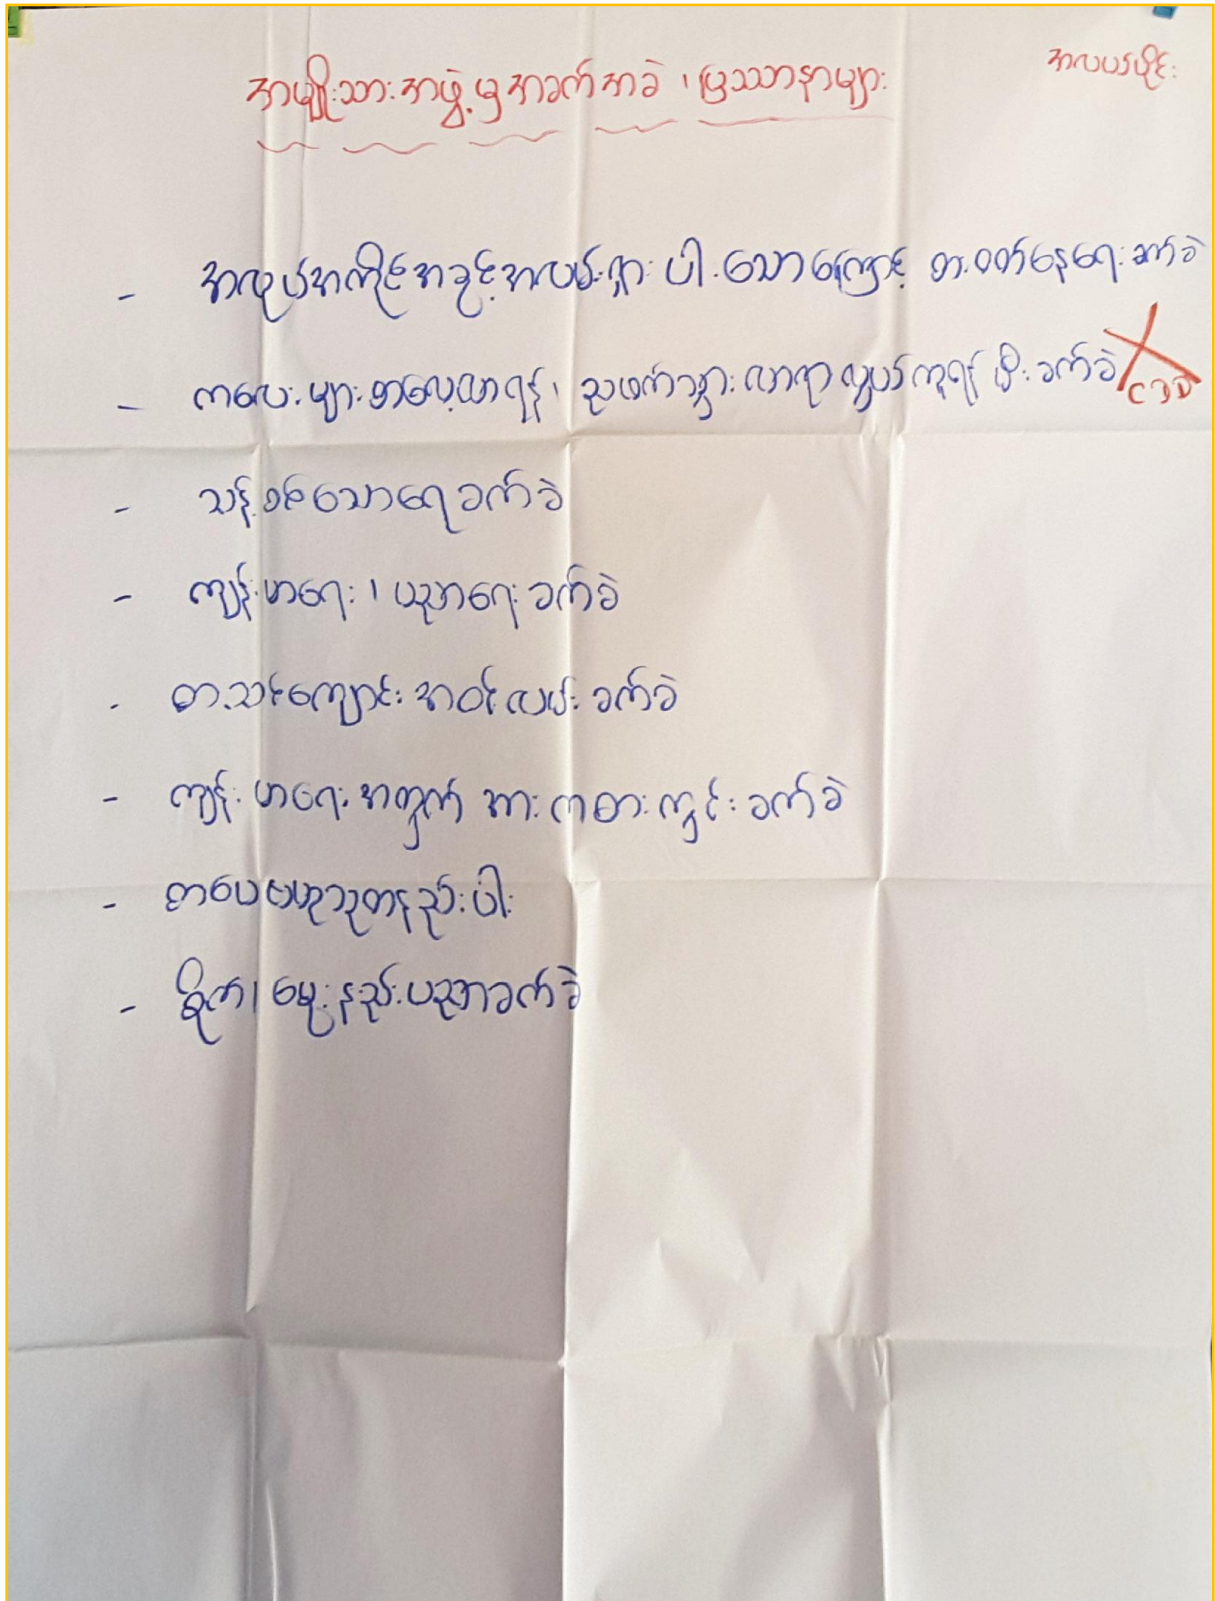 အလယ်ပိုင်း
အမျိုးသားအဖွဲ့မှ အခက်အခဲ ၊ ပြဿနာများ
- အလုပ်အကိုင်အခွင့်အလမ်းရှားပါးသောကြောင့် စားဝတ်နေရေးခက်ခဲ
- ကလေးများစာလေ့လာရန်၊ ညဖက်သွားလာလှုပ်ရှားရန် မီးခက်ခဲ
CDD
- သန့်စင်သောရေခက်ခဲ
- ကျန်းမာရေး ၊ ပညာရေးခက်ခဲ
- စာသင်ကျောင်းအဝင်လမ်းခက်ခဲ
- ကျန်းမာရေးအတွက် အားကစားကွင်းခက်ခဲ
- စာပေဗဟုသုတနည်းပါး
- စိုက်၊ မွေးနည်းပညာခက်ခဲ